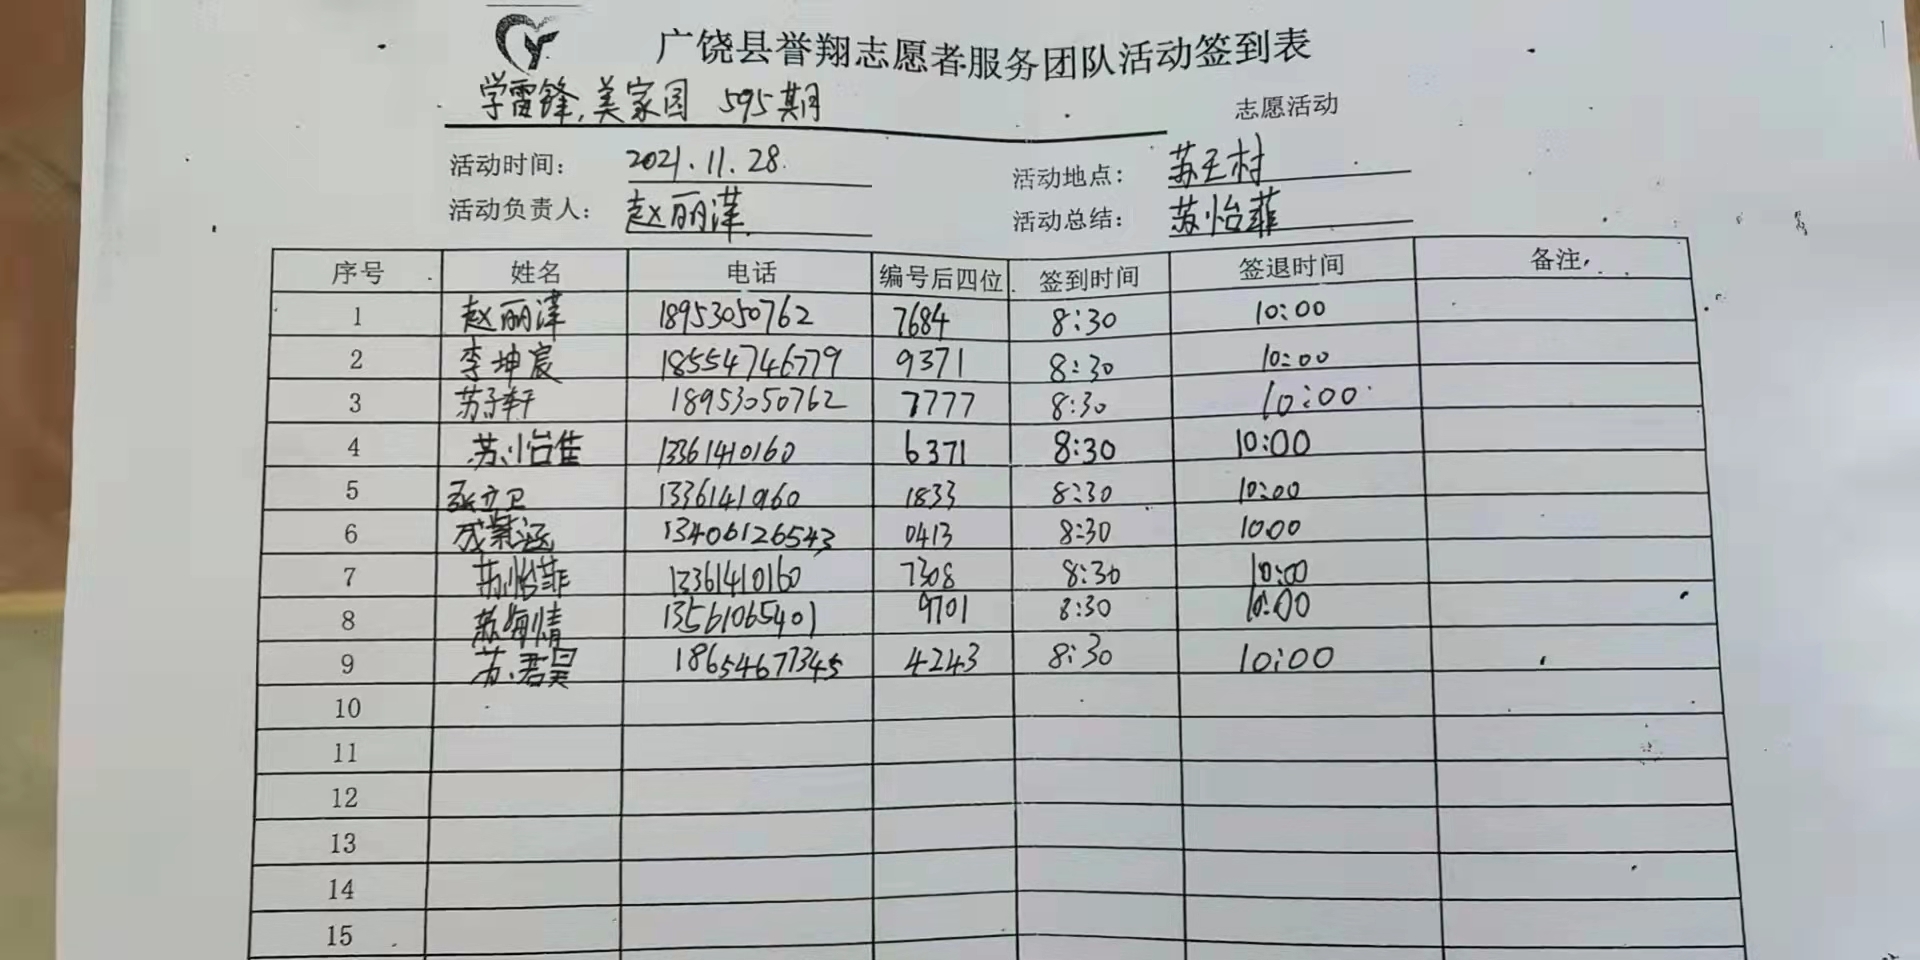 广饶县誉翔志愿者服务团队活动签到表
学雷锋,美家园 595期 志愿活动
活动时间: 2021.11.28. 活动地点: 苏王村
活动负责人: 赵丽萍 活动总结: 苏怡菲
序号 姓名 电话 编号后四位 签到时间 签退时间 备注
1 赵丽萍 18953050762 7684 8:30 10:00
2 李坤宸 18554746779 9371 8:30 10:00
3 苏子轩 18953050762 7777 8:30 10:00
4 苏怡佳 13361410160 6371 8:30 10:00
5 张立卫 13361410160 1833 8:30 10:00
6 成紫涵 13406126543 0413 8:30 1000
7 苏怡菲 13361410160 7308 8:30 10:00
8 苏海情 13561065401 9701 8:30 10:00
9 苏君昊 18654677345 4243 8:30 10:00
10
11
12
13
14
15